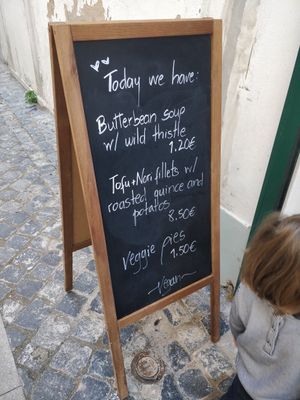 Today we have:
Butterbean soup
w/ wild thistle
1.20€
Tofu+Nori fillets w/
roasted quince and
potatoes
8.50€
Veggie pies
1.50€
Vegan